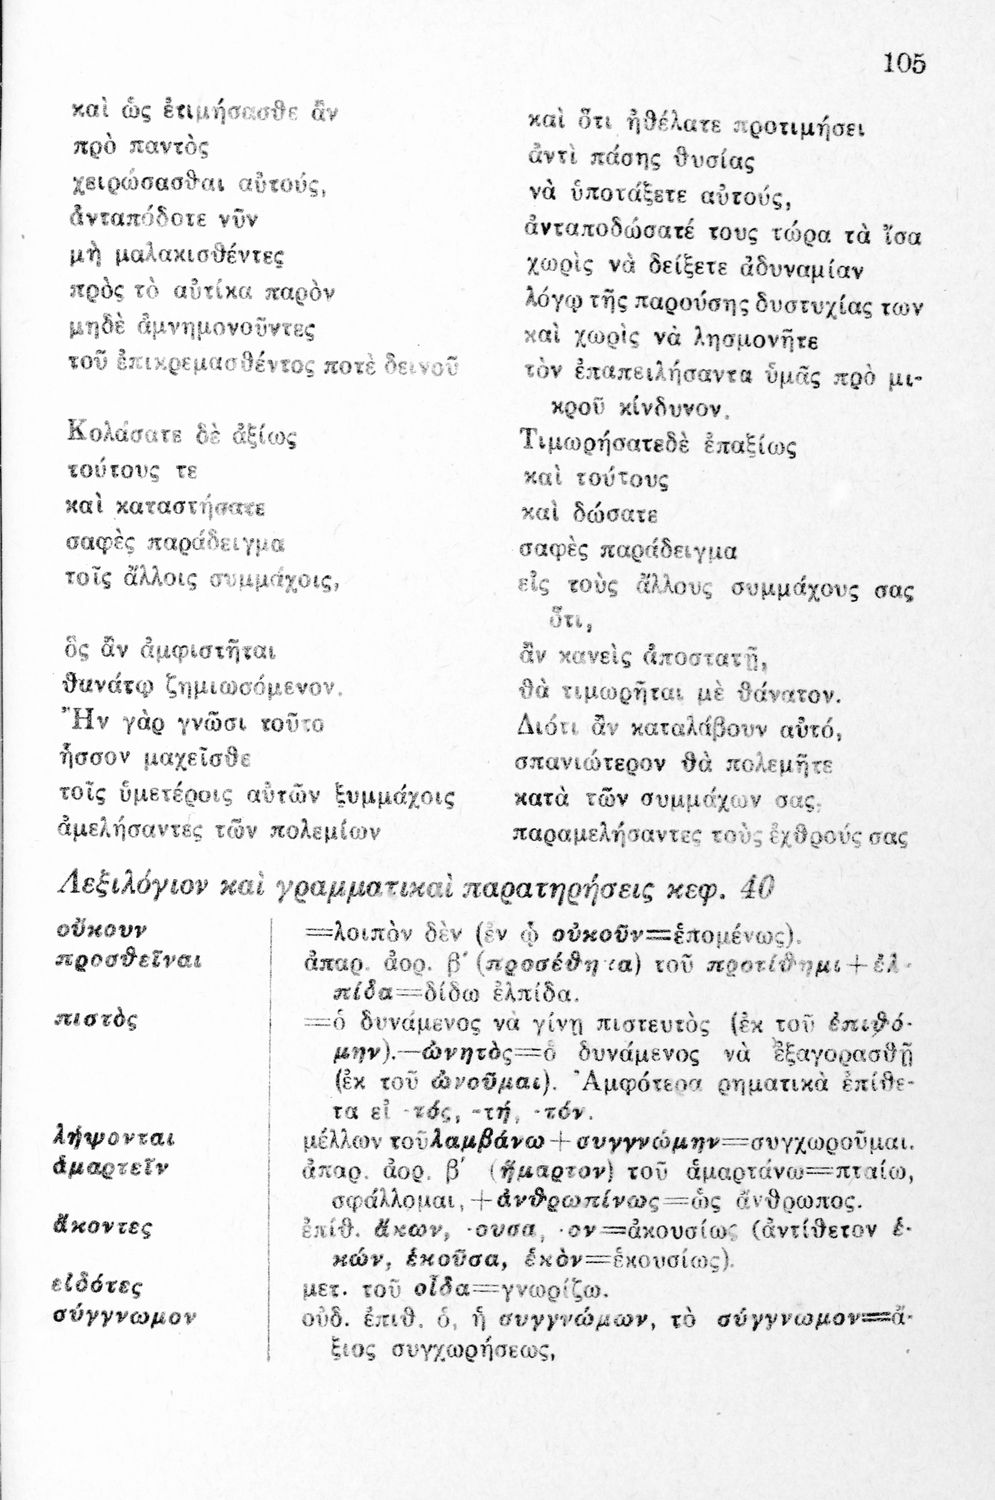 105
καὶ ὡς ἐτιμήσασθε ἂν
πρὸ παντὸς
χειρώσασθαι αὐτούς,
ἀνταπόδοτε νῦν
μὴ μαλακισθέντες
πρὸς τὸ αὐτίκα παρὸν
μηδὲ ἀμνημονοῦντες
τοῦ ἐπικρεμασθέντος ποτὲ δεινοῦ
Κολάσατε δὲ ἀξίως
τούτους τε
καὶ καταστήσατε
σαφὲς παράδειγμα
τοῖς ἄλλοις συμμάχοις,
ὃς ἂν ἀμφιστῆται
θανάτῳ ζημιωσόμενον.
Ἢν γὰρ γνῶσι τοῦτο
ἧσσον μαχεῖσθε
τοῖς ὑμετέροις αὐτῶν ξυμμάχοις
ἀμελήσαντες τῶν πολεμίων
καὶ ὅτι ἠθέλατε προτιμήσει
ἀντὶ πάσης θυσίας
νὰ ὑποτάξετε αὐτούς,
ἀνταποδώσατέ τους τώρα τὰ ἴσα
χωρὶς νὰ δείξετε ἀδυναμίαν
λόγῳ τῆς παρούσης δυστυχίας των
καὶ χωρὶς νὰ λησμονῆτε
τὸν ἐπαπειλήσαντα ὑμᾶς πρὸ μι-
κροῦ κίνδυνον.
Τιμωρήσατεδὲ ἐπαξίως
καὶ τούτους
καὶ δώσατε
σαφὲς παράδειγμα
εἰς τοὺς ἄλλους συμμάχους σας
ὅτι,
ἂν κανεὶς ἀποστατῇ,
θὰ τιμωρῆται μὲ θάνατον.
Διότι ἂν καταλάβουν αὐτό,
σπανιώτερον θὰ πολεμῆτε
κατὰ τῶν συμμάχων σας,
παραμελήσαντες τοὺς ἐχθρούς σας
Λεξιλόγιον καὶ γραμματικαὶ παρατηρήσεις κεφ. 40
οὔκουν =λοιπὸν δὲν (ἐν ᾧ οὐκοῦν=ἑπομένως).
προσθεῖναι ἀπαρ. ἀορ. β΄ (προσέθηκα) τοῦ προτίθημι + ἐλ-
πίδα=δίδω ἐλπίδα.
πιστὸς =ὁ δυνάμενος νὰ γίνῃ πιστευτὸς (ἐκ τοῦ ἐπιθό-
μην).—ὠνητὸς=ὁ δυνάμενος νὰ ἐξαγορασθῇ
(ἐκ τοῦ ὠνοῦμαι). Ἀμφότερα ρηματικὰ ἐπίθε-
τα εἰ -τός, -τή, -τόν.
λήψονται μέλλων τοῦλαμβάνω + συγγνώμην=συγχωροῦμαι.
ἁμαρτεῖν ἀπαρ. ἀορ. β΄ (ἥμαρτον) τοῦ ἁμαρτάνω=πταίω,
σφάλλομαι, + ἀνθρωπίνως=ὡς ἄνθρωπος.
ἄκοντες ἐπίθ. ἄκων, -ουσα, -ον=ἀκουσίως (ἀντίθετον ἑ-
κών, ἑκοῦσα, ἑκὸν=ἑκουσίως).
εἰδότες μετ. τοῦ οἶδα=γνωρίζω.
σύγγνωμον οὐδ. ἐπιθ. ὁ, ἡ συγγνώμων, τὸ σύγγνωμον=ἄ-
ξιος συγχωρήσεως,